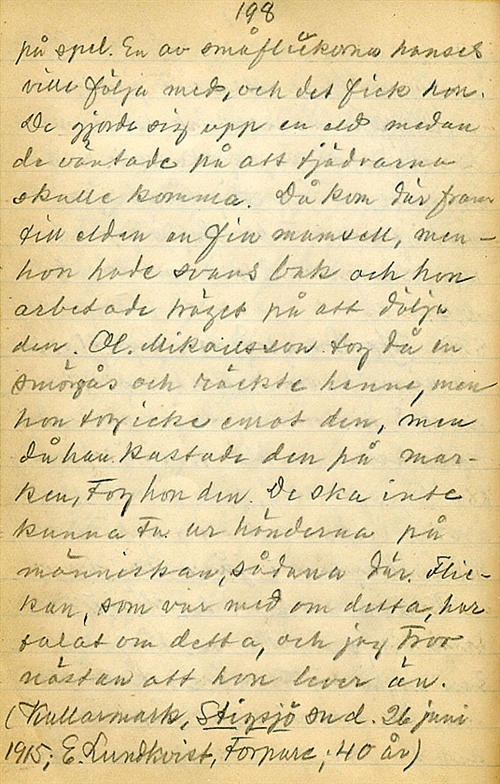 198
på spel. En av småflickorna hanses
ville följa med, och det fick hon.
De gjorde sig upp en eld medan
de väntade på att tjädrarna
skulle komma. Då kom där fram
till elden en fin mamsell, men –
hon hade svans bak och hon
arbetade träget på att dölja
den. Ol. Mikaelsson tog då en
smörgås och räckte henne, men
hon tog icke emot den, men
då han kastade den på mar-
ken, tog hon den. De ska inte
kunna ta ur händerna på
människan, sådana där. Flic-
kan, som var med om detta, har
talat om detta, och jag tror
nästan att hon lever än.
(Kullarmark, Stigsjö sn d. 26 juni
1915; E. Lundkvist, Torpare, 40 år)